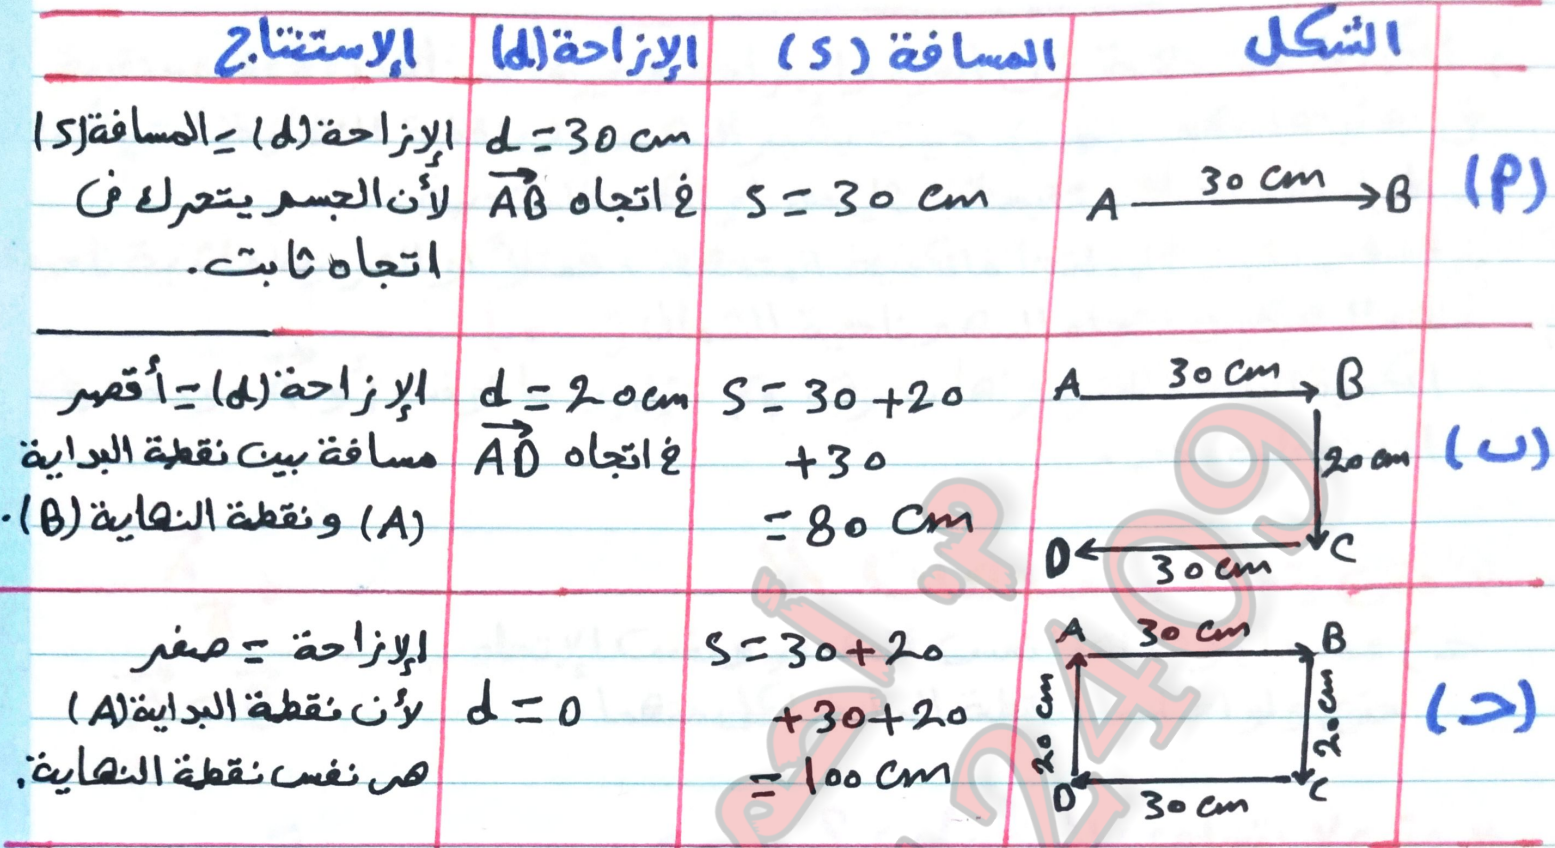 الشكل
المسافة (S)
الإزاحة (d)
الإستنتاج
(م)
A 30 cm B
S = 30 cm
d = 30 cm
في اتجاه AB
الإزاحة (d) = المسافة (S)
لأن الجسم يتحرك فى
اتجاه ثابت.
(ب)
A 30 cm B
20 cm
D 30 cm C
S = 30 + 20
+ 30
= 80 cm
d = 20 cm
في اتجاه AD
الإزاحة (d) = أقصر
مسافة بين نقطة البداية
(A) ونقطة النهاية (B).
(حـ)
A 30 cm B
20 cm
20 cm
D 30 cm C
S = 30 + 20
+ 30 + 20
= 100 cm
d = 0
الإزاحة = صفر
لأن نقطة البداية (A)
هى نفس نقطة النهاية.
2409